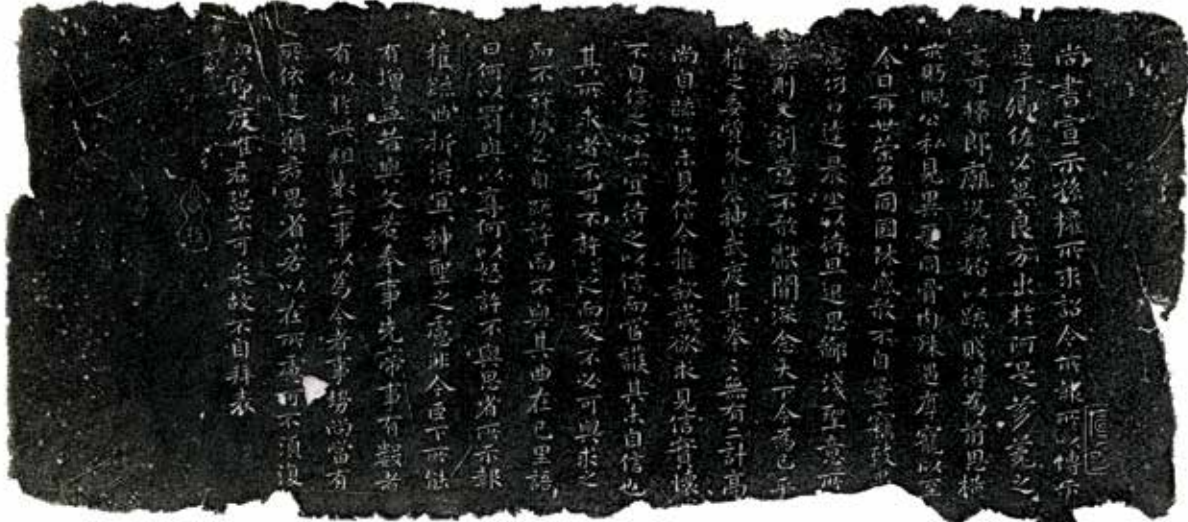 尚書宣示孫權所求詔令所報所以博示
逮于卿佐必冀良方出於阿是芻蕘之
言可擇郎廟況繇始以疏賤得為前恩橫
所眄睨公私見異愛同骨肉殊遇厚寵以至
今日再世榮名同國休慼敢不自量竊致
愚慮仍日達晨坐以待旦退思鄙淺聖意所
棄則又割意不敢獻聞深念天下今為已平
權之委質外震神武度其拳〻無有二計高
尚自疏況未見信今推款誠欲求見信實懷
不自信之心亦宜待之以信而當護其未自信也
其所求者不可不許許之而反不必可與求之
而不許勢必自絕許而不與其曲在己里語
曰何以罰與以奪何以怒許不與思省所示報
權疏曲折得宜宜神聖之慮非今臣下所能
有增益昔與文若奉事先帝事有數者
有似於此粗表二事以為今者事勢尚當有
所依違願君思省若以在所慮可不須復
貌節度唯君恐不可采故不自拜表